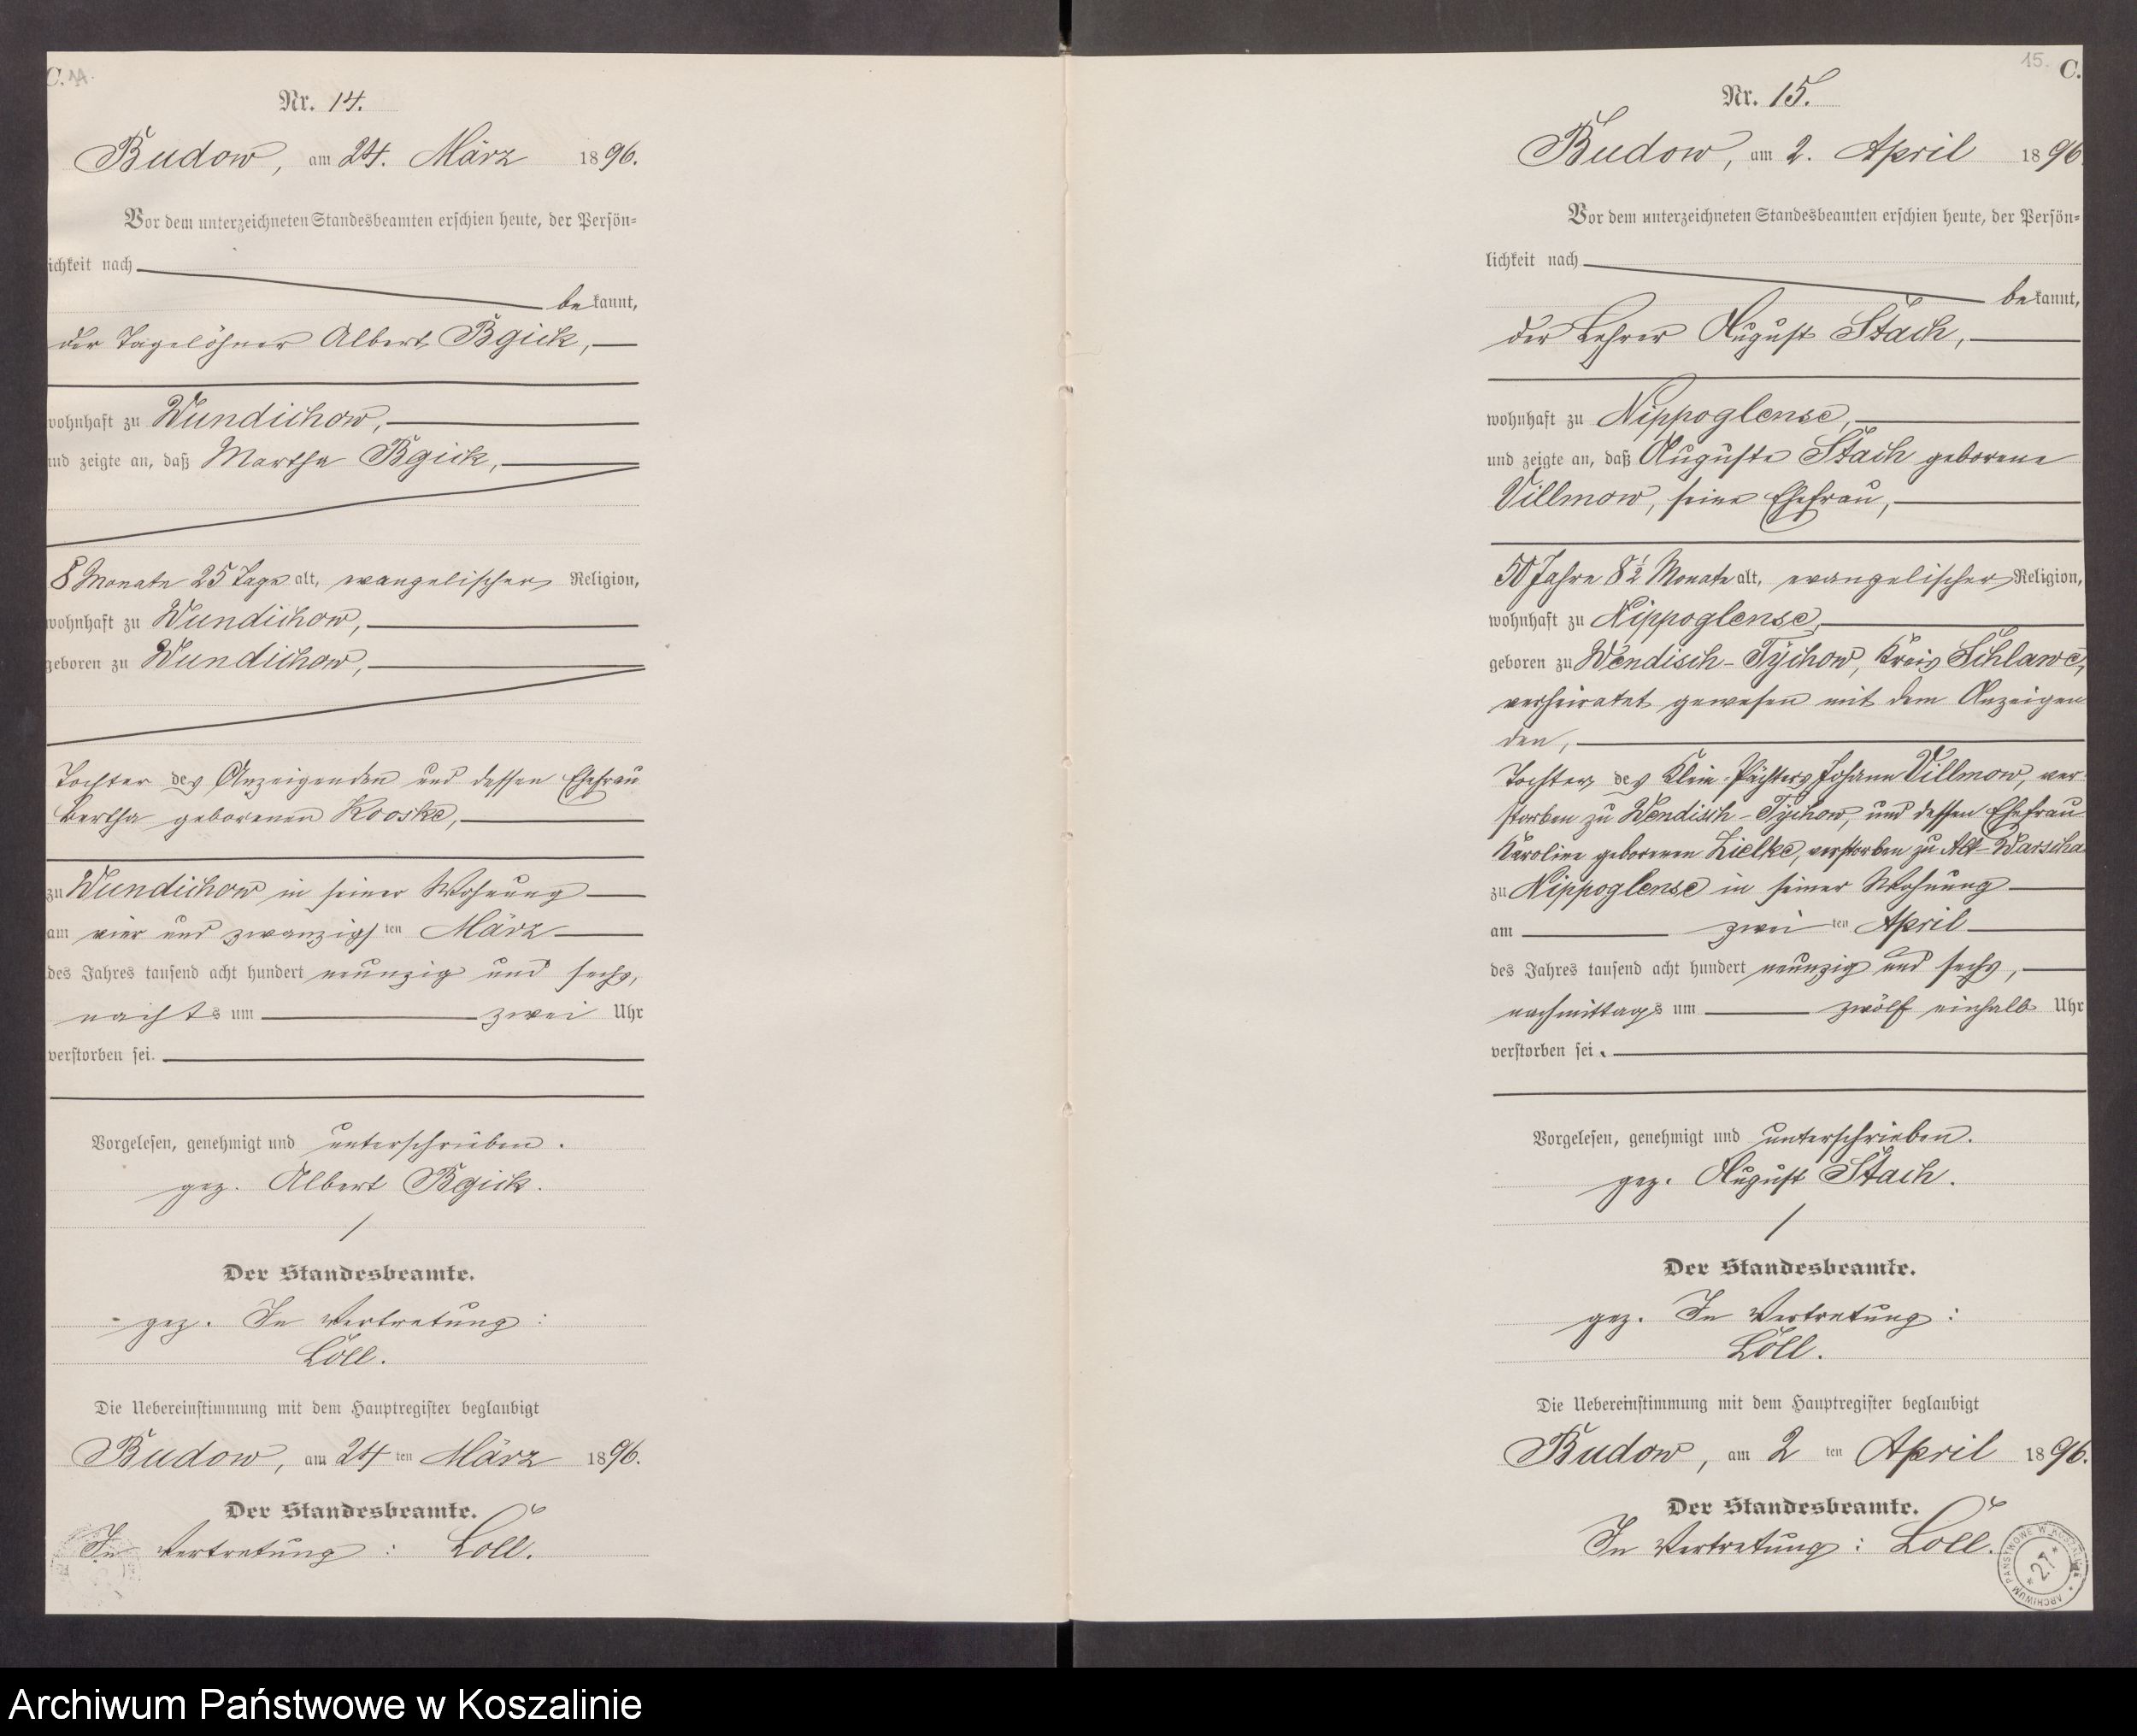 C. 14.
Nr. 14.
Budow, am 24. März 1896.
Vor dem unterzeichneten Standesbeamten erschien heute, der Persön-
ichkeit nach
bekannt,
der Tagelöhner Albert Bgick,
wohnhaft zu Wundichow,
und zeigte an, daß Martha Bgick,
8 Monate 25 Tage alt, evangelischer Religion,
wohnhaft zu Wundichow,
geboren zu Wundichow,
Tochter des Anzeigenden und dessen Ehefrau
Bertha geborenen Kooske,
zu Wundichow in seiner Wohnung
am vier und zwanzigsten März
des Jahres tausend acht hundert neunzig und sechs,
nachts um zwei Uhr
verstorben sei.
Vorgelesen, genehmigt und unterschrieben.
gez. Albert Bgick.
Der Standesbeamte.
gez. In Vertretung:
Löll.
Die Uebereinstimmung mit dem Hauptregister beglaubigt
Budow, am 24ten März 1896.
Der Standesbeamte.
In Vertretung: Löll.
15. C.
Nr. 15.
Budow, am 2. April 1896
Vor dem unterzeichneten Standesbeamten erschien heute, der Persön-
lichkeit nach
bekannt,
der Lehrer August Stach,
wohnhaft zu Nippoglense,
und zeigte an, daß Auguste Stach geborene
Villmow, seine Ehefrau,
50 Jahre 8½ Monate alt, evangelischer Religion,
wohnhaft zu Nippoglense,
geboren zu Wendisch-Tychow, Kreis Schlawe,
verheiratet gewesen mit dem Anzeigen
den,
Tochter des Klein-Pächters Johann Villmow, ver
storben zu Wendisch-Tychow, und dessen Ehefrau
Karoline geborenen Zielke, verstorben zu Alt-Warscha
zu Nippoglense in seiner Wohnung
am zweiten April
des Jahres tausend acht hundert neunzig und sechs,
nachmittags um zwölf einhalb Uhr
verstorben sei.
Vorgelesen, genehmigt und unterschrieben.
gez. August Stach.
Der Standesbeamte.
gez. In Vertretung:
Löll.
Die Uebereinstimmung mit dem Hauptregister beglaubigt
Budow, am 2ten April 1896.
Der Standesbeamte.
In Vertretung: Löll.
ARCHIWUM PAŃSTWOWE W KOSZALINIE
* 27 *
Archiwum Państwowe w Koszalinie